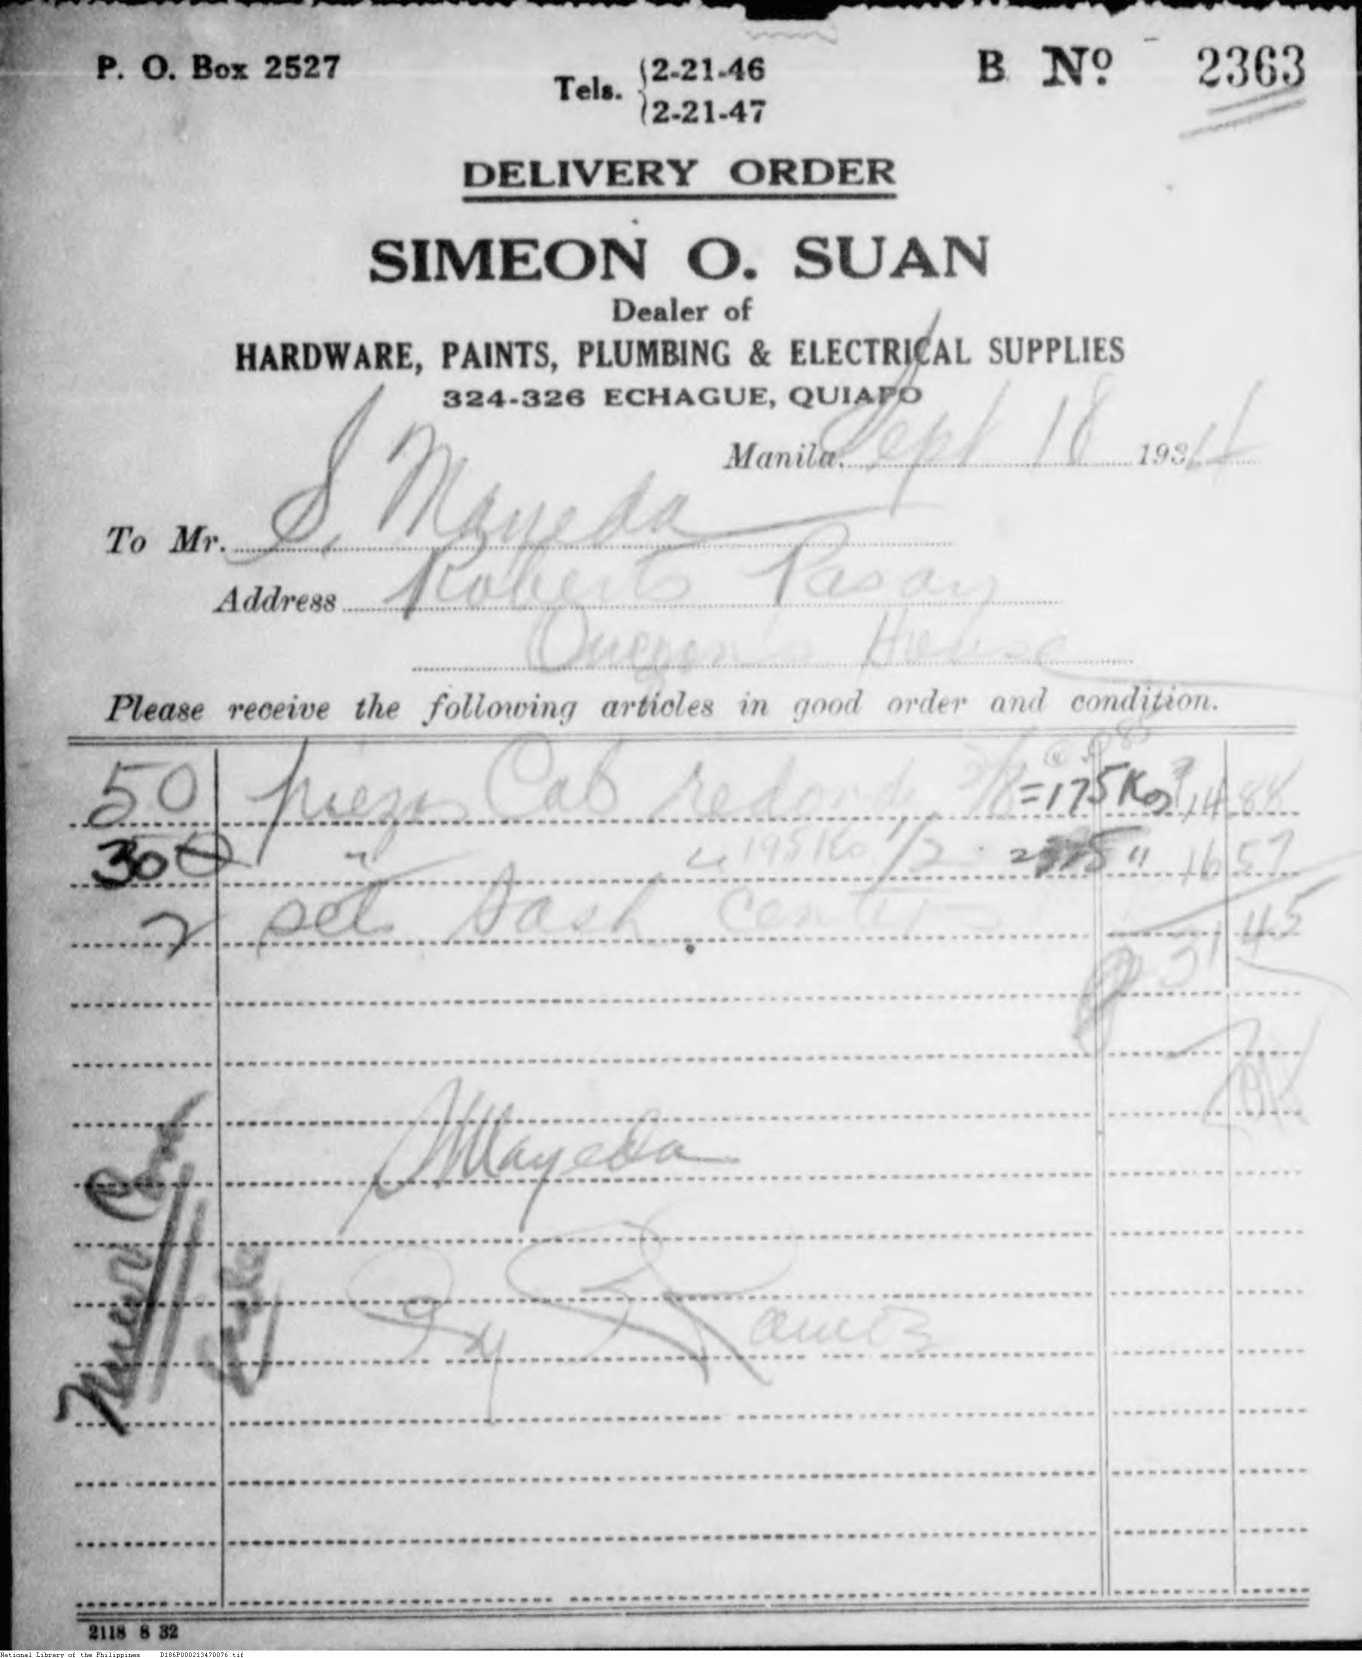 P. O. Box 2527
Tels. 2-21-46
2-21-47
B No 2363
DELIVERY ORDER
SIMEON O. SUAN
Dealer of
HARDWARE, PAINTS, PLUMBING & ELECTRICAL SUPPLIES
324-326 ECHAGUE, QUIAPO
Manila. Sept 18 1934
To Mr. S. Mayeda
Address Roberts Pasay
Quezon's House
Please receive the following articles in good order and condition.
50 piezas Cab redondo 3/8 =175 Ko 14 88
30 " " 195 Ko 1/2 " 16 57
2 set Sash
31 45
SMayeda
By Ramos
2118 8 32
National Library of the Philippines D186P000213470076.tif